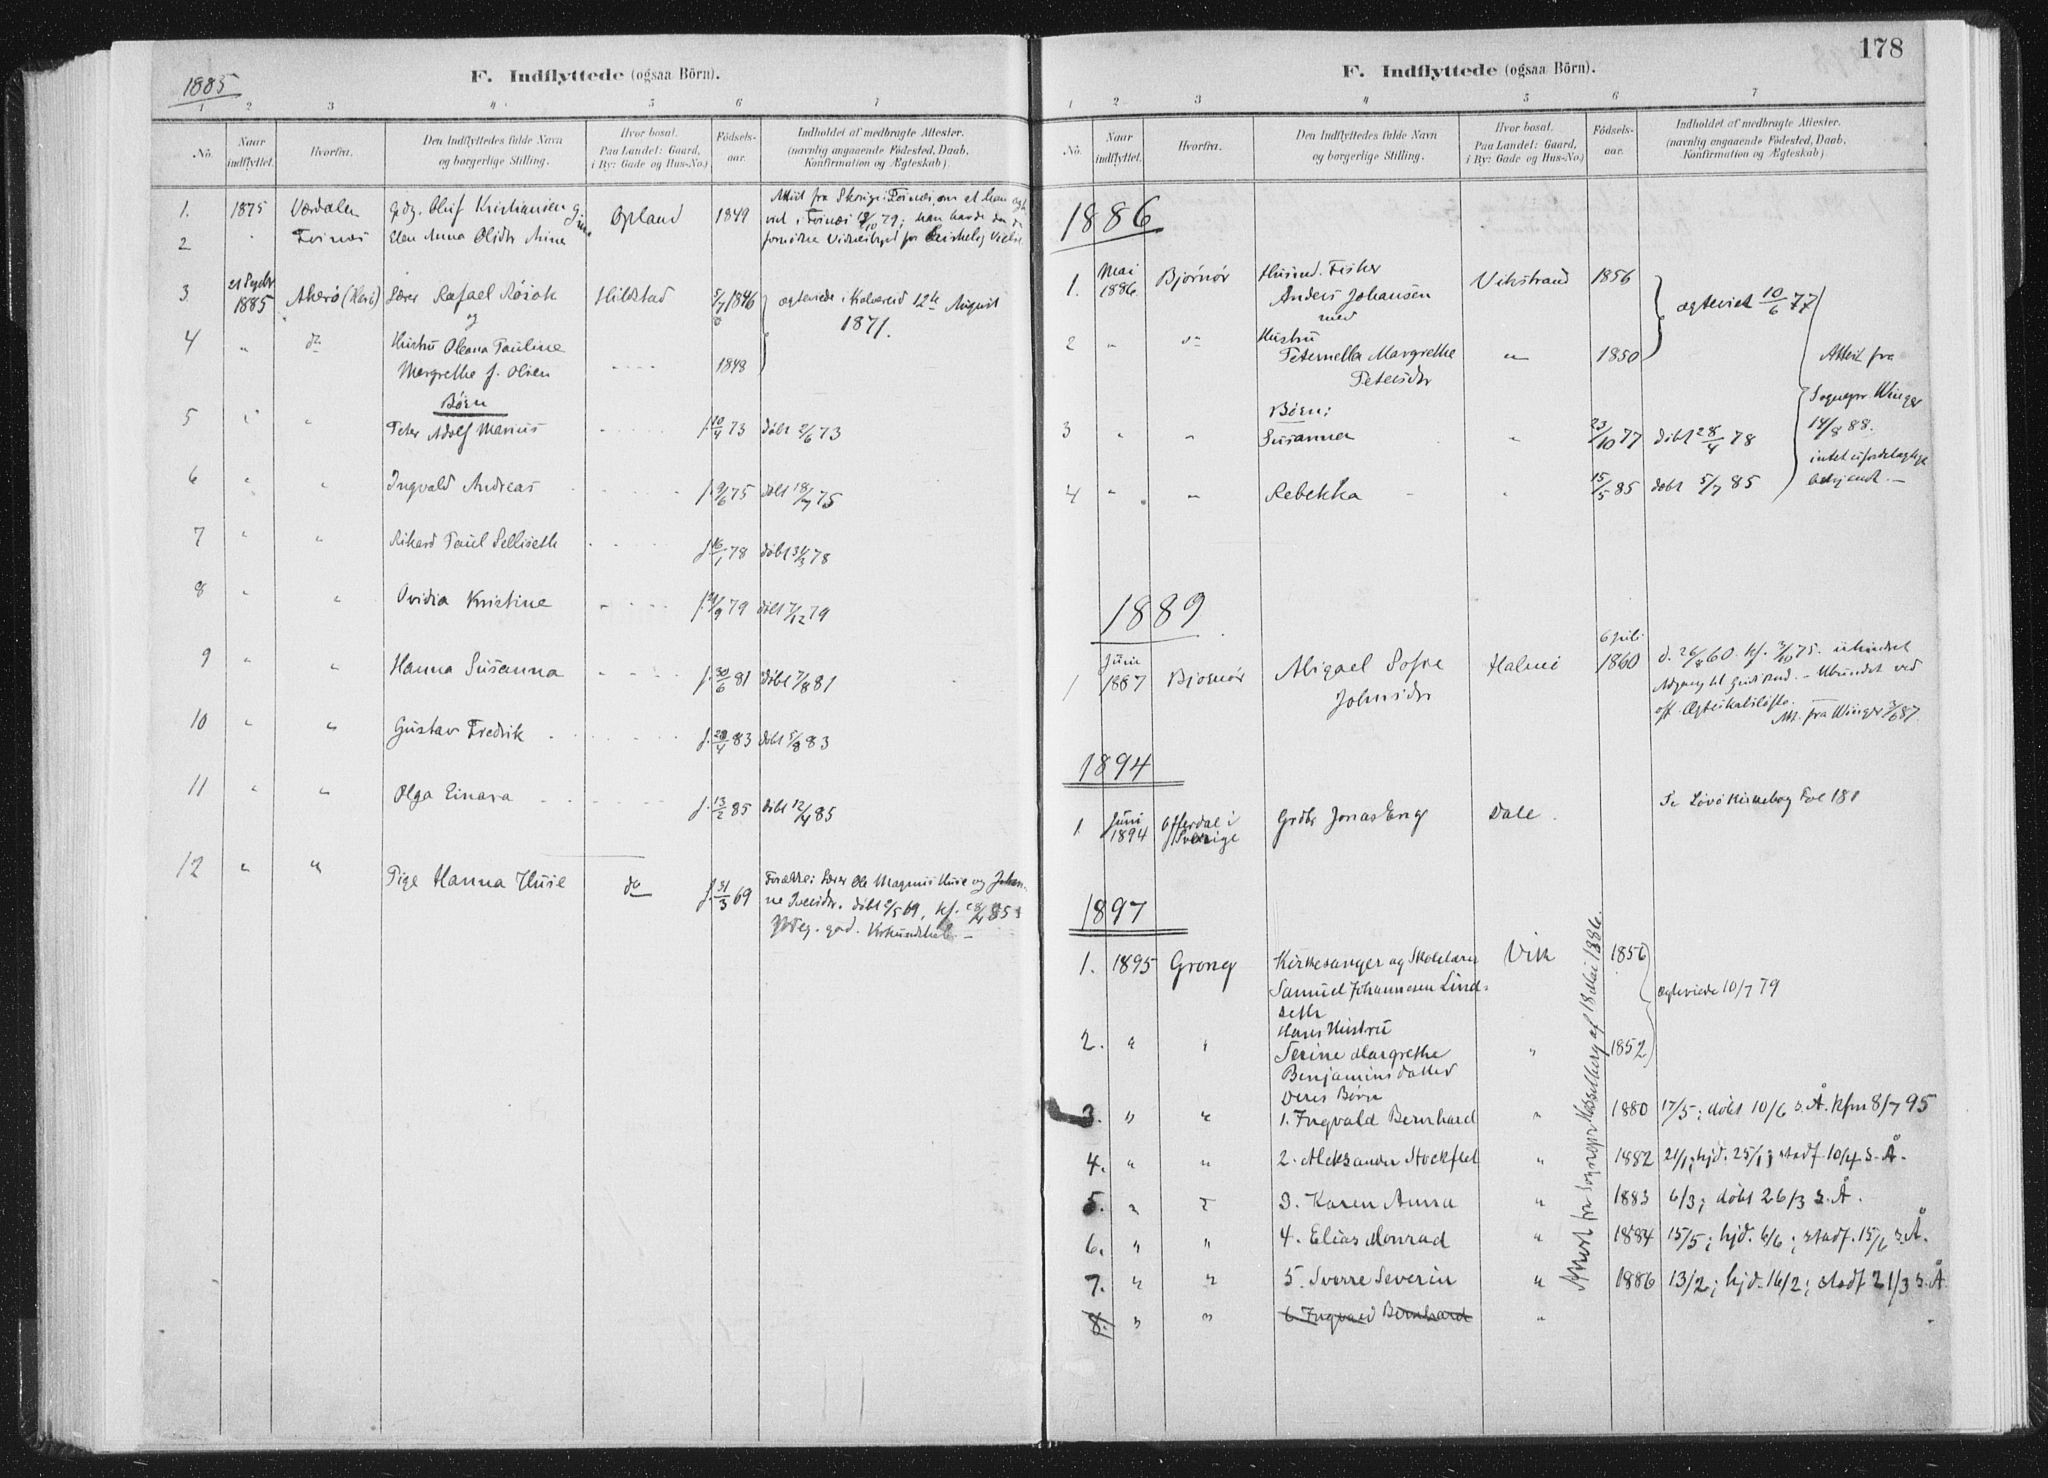 1885
F. Indflyttede (ogsaa Börn).
1 2 3 4 5 6 7
No. Naar indflyttet. Hvorfra. Den Indflyttedes fulde Navn og borgerlige Stilling. Hvor bosat. Paa Landet: Gaard, i By: Gade og Hus-No.) Födsels-aar. Indholdet af medbragte Attester. (navnlig angaaende Födested, Daab, Konfirmation og Ægteskab).
1. 1875 Værdalen Oluf Kristiansen Opland 1849
2 Elen Anna
3 1885 Akerö Lærer Rafael Hildstad 5/7 1846 ægteviede i 12te August
og 1871.
4 " do Hustru Oleana Pauline
Margrethe f. Olsen 1848
Börn
5 " " Peter Adolf Marius f. 10/4 73 döbt 2/6 73
6 " " Ingvald Andreas f. 9/6 75 döbt 18/7 75
7 " " Rikard Paul Selliseth f. 16/1 78 döbt 78
8 " " Ovidia Kristine 79 döbt 7/12 79
9 " " Hanna Susanna f. 30/6 81 döbt 7/8 81
10 " " Gustav Fredrik f. 20/4 83 döbt 5/8 83
11 " " Olga Einara f. 13/2 85 döbt 12/4 85
12 " " Pige Hanna Huse do f. 31/3 69 Forældre: Lærer Ole Magnus Huse og Johan-
ne döbt 2/5 69, kf.
178
F. Indflyttede (ogsaa Börn).
1 2 3 4 5 6 7
No. Naar indflyttet. Hvorfra. Den Indflyttedes fulde Navn og borgerlige Stilling. Hvor bosat. Paa Landet: Gaard, i By: Gade og Hus-No.) Födsels-aar. Indholdet af medbragte Attester. (navnlig angaaende Födested, Daab, Konfirmation og Ægteskab).
1886
1. Mai 1886 Bjørnør Husmd. Fisker
Anders Johansen Vikstrand 1856 ægteviet 10/6 77
med
2 " do Hustru
Peternella Margrethe " 1850
Petersdtr
Attest fra
Sognepr Winger
14/8 88.
Börn:
3 " " Susanna " 23/10 77 döbt 28/4 78
4 " " Rebekka " 15/5 85 döbt 5/7 85
1889
1 Juni 1887 Bjørnør Abigael Sofie
Johnsdr Halmö 6 Juli 1860 d. 26/8 60. kf. 3/10 75. uhindret
Adgang til Ubundet ved
off. Ægteskabsløfte.
Att. fra Winger
1894
1 Juni 1894 Offerdal i Sverige Grdbr Jonas Eng Dale. Se Lövö Kirkebog Fol 181
1897
1. 1895 Grong Kirkesanger og Skolelærer Vik 1856
Samuel Johannesen Lind-
seth ægteviede 10/7 79
2. " " Hans Hustru
Serine Margrethe " 1852
Benjaminsdatter
Deres Börn
3. " " 1. Ingvald Bernhard " 1880 17/5; döbt 10/6 s. Å. kfm 8/7 95
4. " " 2. Aleksander Stockflet " 1882 21/1; hjd. 25/1; stadf 10/4 s. Å.
5. " " 3. Karen Anna " 1883 6/3; döbt 26/3 s. Å.
6. " " 4. Elias Monrad " 1884 15/5; hjd. 6/6; stadf. 15/6 s. Å.
7. " " 5. Sverre Severin " 1886 13/2; hjd. 16/2; stadf 21/3 s. Å
8. " " 6. Ingvald Bernhard "
Attest fra Sognepr Hasselberg af 18 Mai 1886.